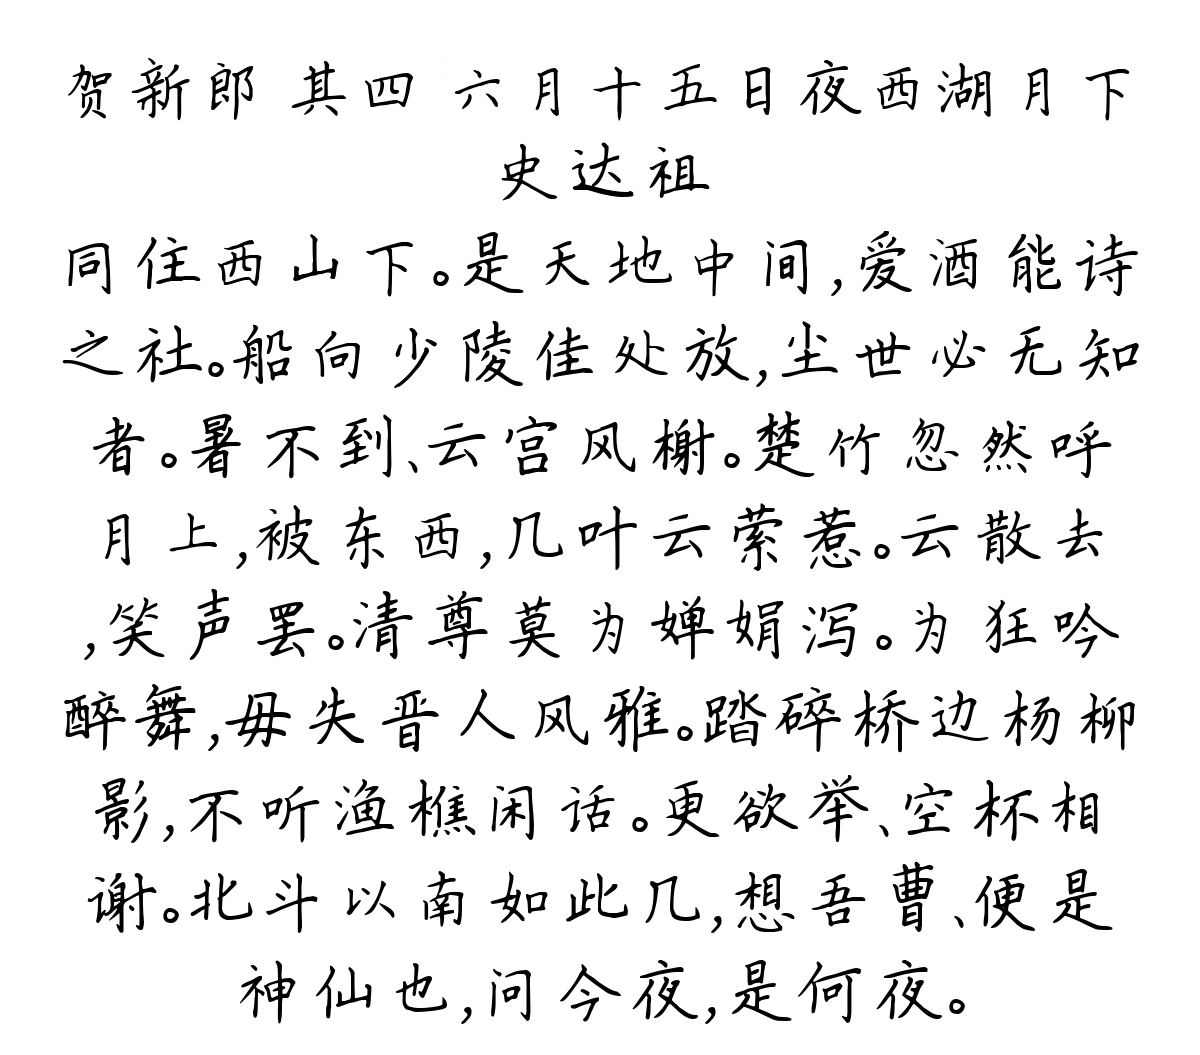 贺新郎 其四 六月十五日夜西湖月下
史达祖
同住西山下。是天地中间,爱酒能诗
之社。船向少陵佳处放,尘世必无知
者。暑不到、云宫风榭。楚竹忽然呼
月上,被东西,几叶云萦惹。云散去
,笑声罢。清尊莫为婵娟泻。为狂吟
醉舞,毋失晋人风雅。踏碎桥边杨柳
影,不听渔樵闲话。更欲举、空杯相
谢。北斗以南如此几,想吾曹、便是
神仙也,问今夜,是何夜。